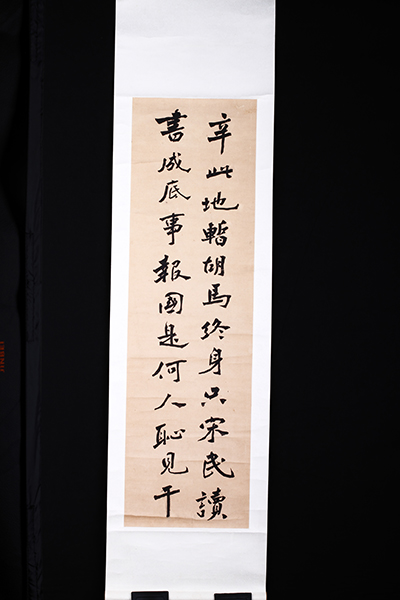 辛此地暫胡馬終身只宋民讀
書成底事報國是何人恥見干